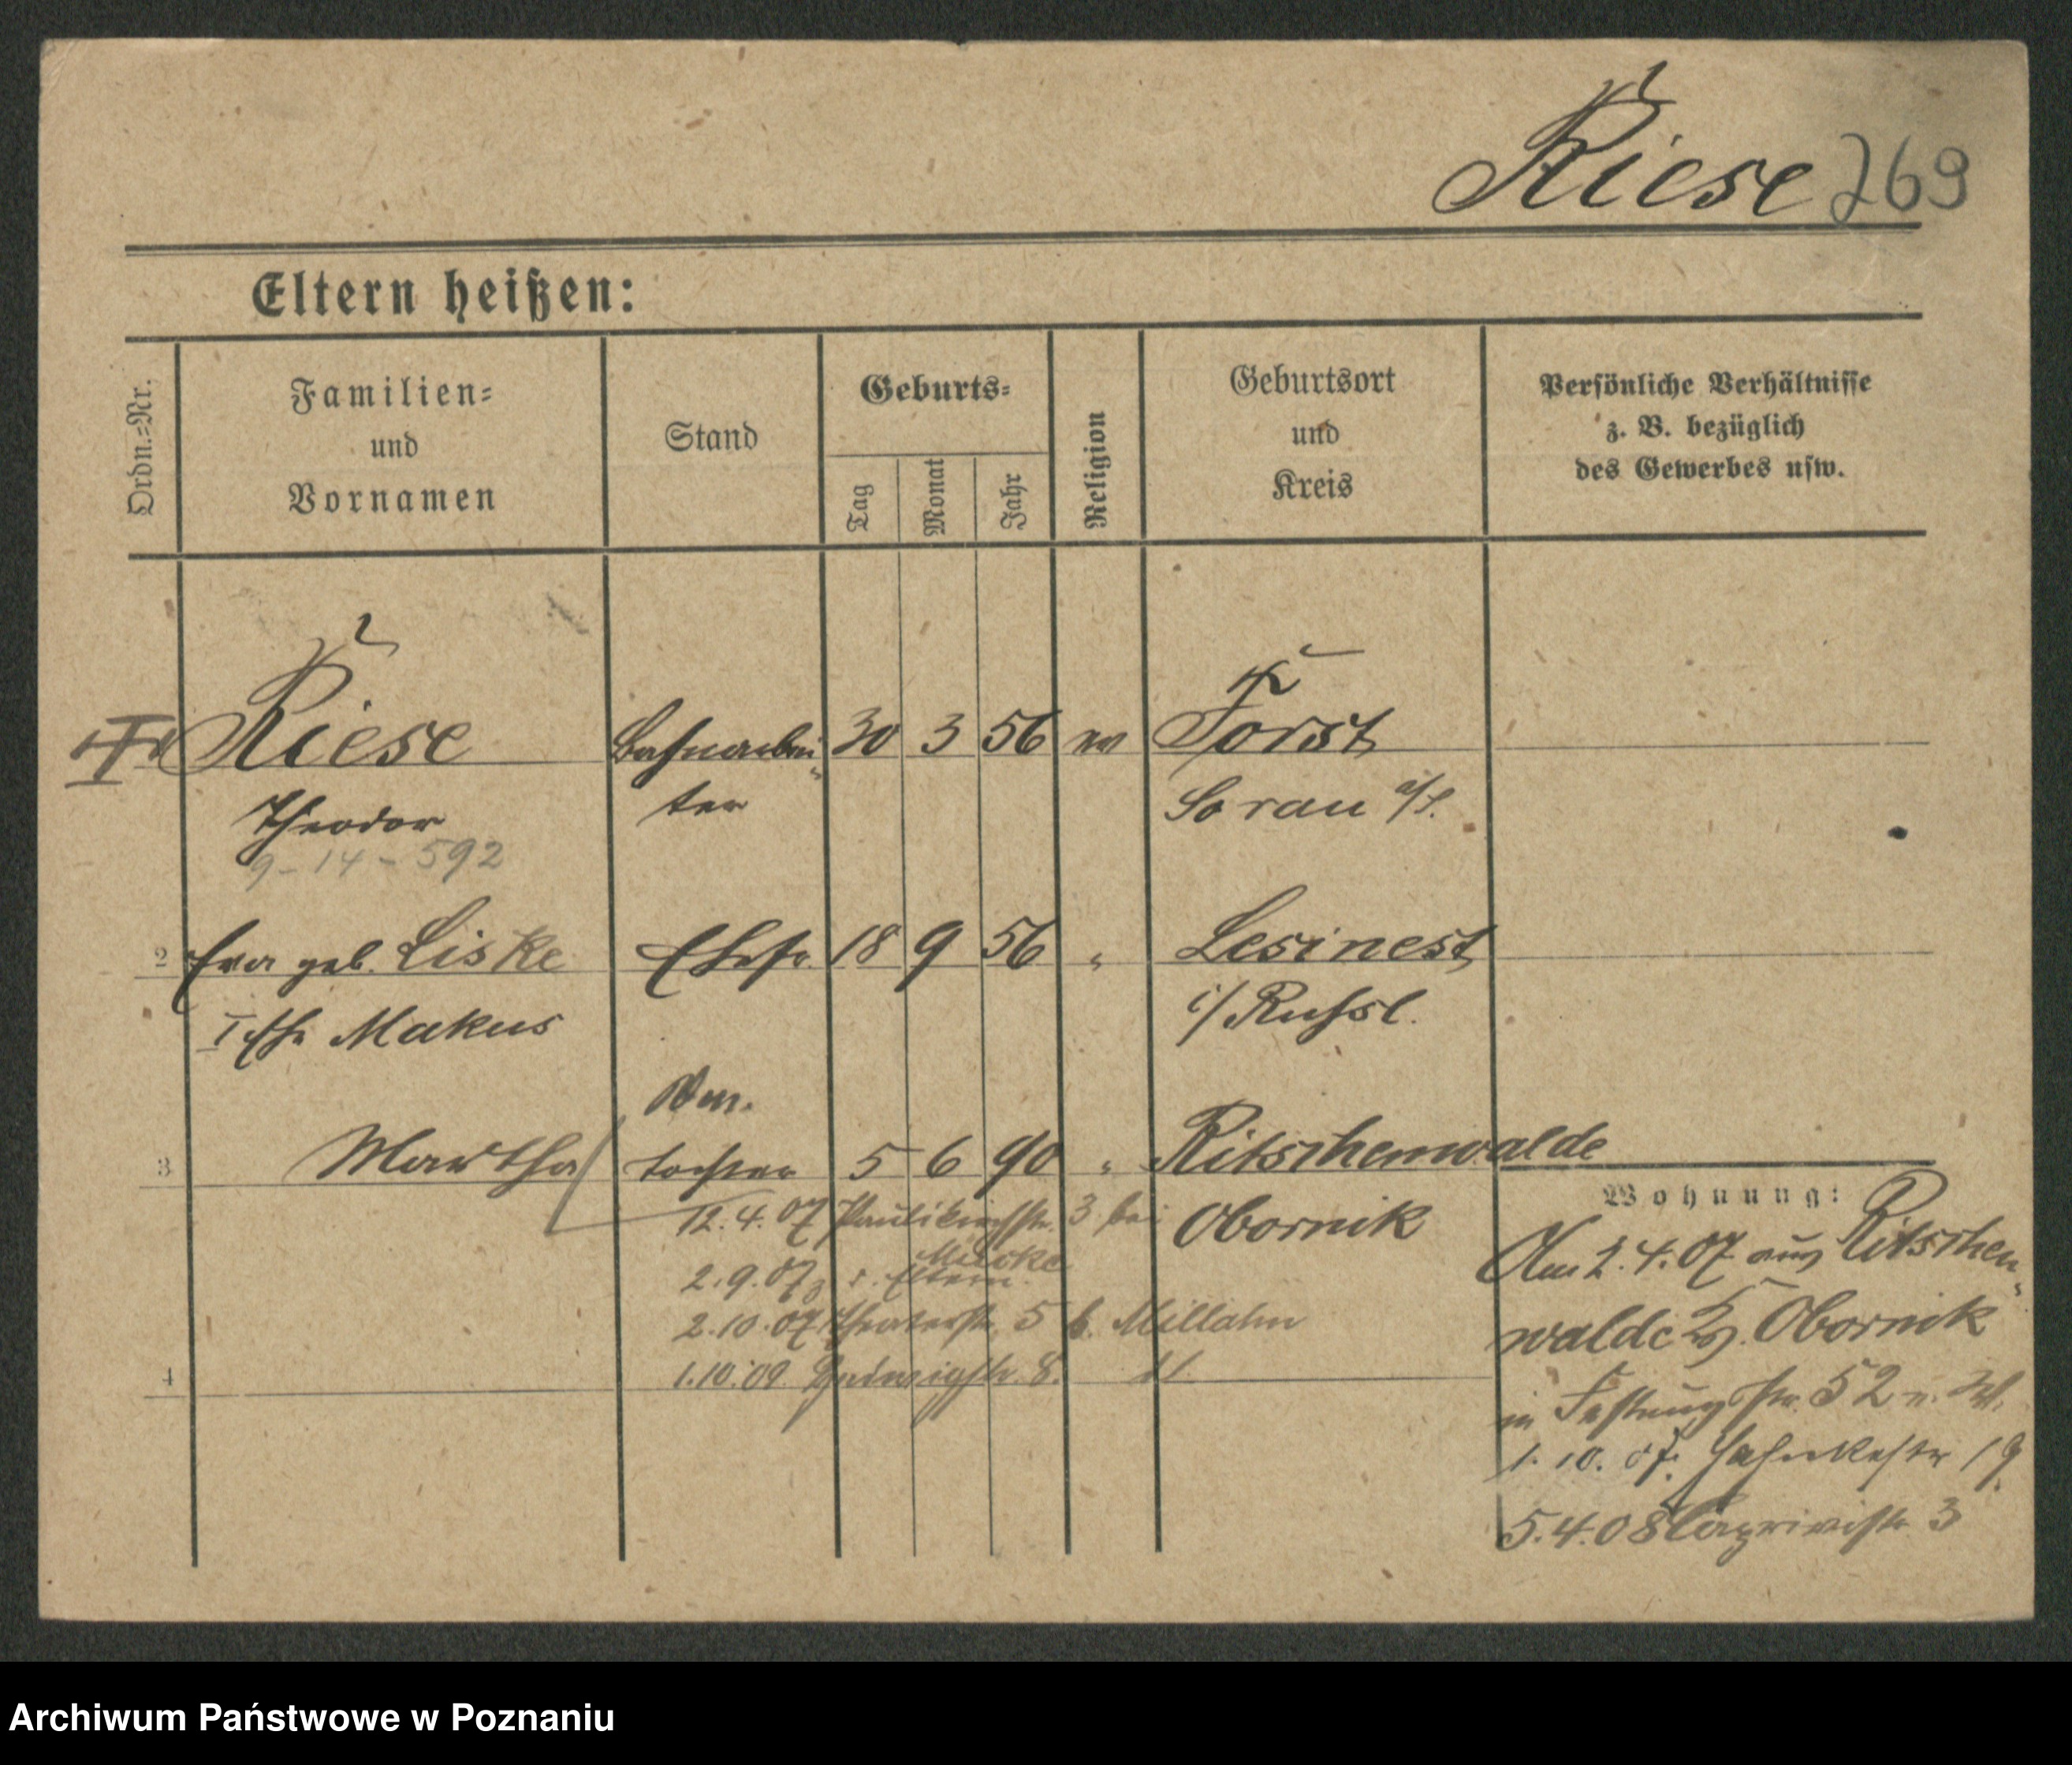 Riese 269
Eltern heißen:
Ordn.=Nr.
Familien=
und
Vornamen
Stand
Geburts=
Tag
Monat
Jahr
Religion
Geburtsort
und
Kreis
Persönliche Verhältnisse
z. B. bezüglich
des Gewerbes usw.
Riese Bahnarbei- 30 3 56 ev Forst
Theodor ter Sorau
9-14-592
2 Eva geb. Liske Ehefr. 18 9 56 " Lesinest
I Ehe Makus i/Russl.
3 Martha tochter 5 6 90 " Ritschenwalde
12.4.07 Paulikirchstr. 3 bei Obornik
2.9.07 z. d. Eltern.
2.10.07 Theaterstr. 5 b. Millahn
4 1.10.09 Ludwigstr. 8.
Wohnung:
Am 2.4.07 aus Ritschen-
walde Kr. Obornik
in Festungsstr. 52
1.10.07. Hahnkestr 19.
5.4.08 Caprivistr. 3
Archiwum Państwowe w Poznaniu